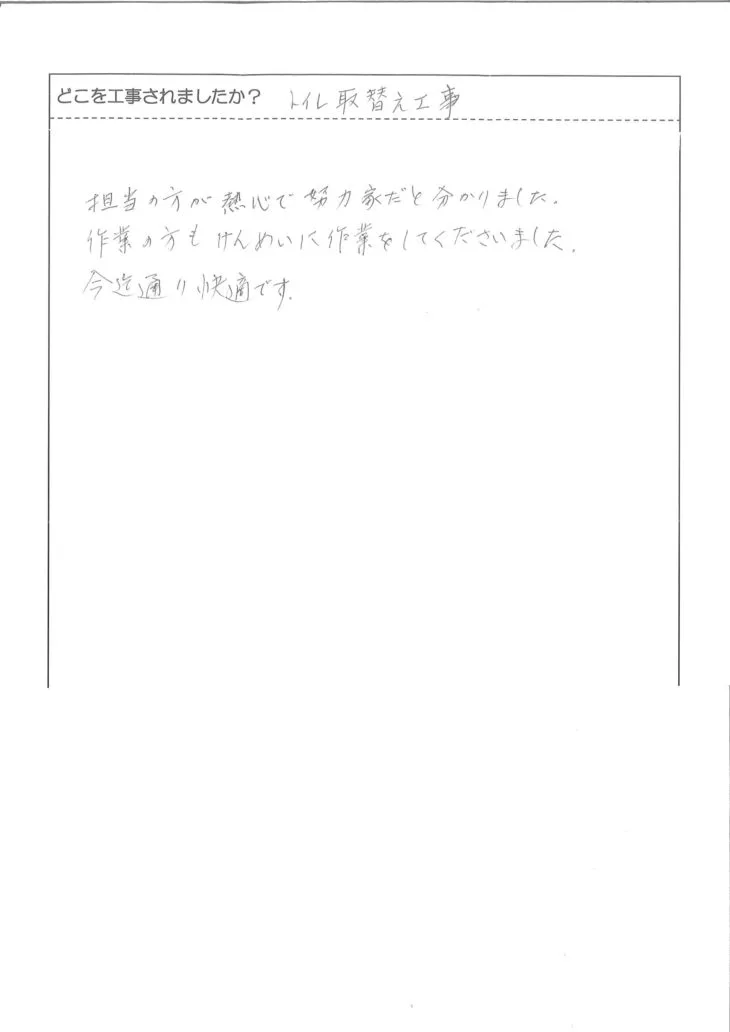 どこを工事されましたか? トイレ取替え工事
担当の方が熱心で努力家だと分かりました.
作業の方もけんめいに作業をしてくださいました.
今迄通り快適です.